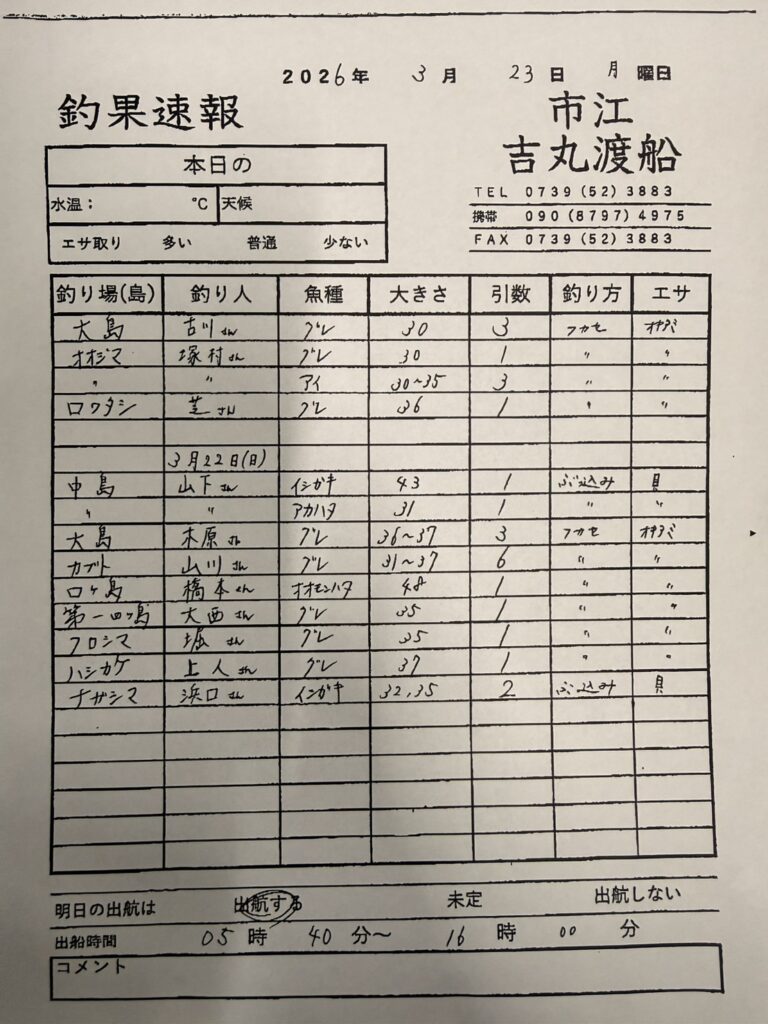 2026年 3月 23日 月曜日
釣果速報
市江
吉丸渡船
本日の
水温: ℃ 天候
エサ取り 多い 普通 少ない
TEL 0739(52)3883
携帯 090(8797)4975
FAX 0739(52)3883
釣り場(島) 釣り人 魚種 大きさ 引数 釣り方 エサ
大島 古川さん グレ 30 3 フカセ オキアミ
オオジマ 塚村さん グレ 30 1 〃 〃
〃 〃 アイ 30~35 3 〃 〃
口ワタシ 芝さん グレ 36 1 〃 〃
3月22日(日)
中島 山下さん イシガキ 43 1 ぶっ込み 貝
〃 〃 アカハタ 31 1 〃 〃
大島 木原さん グレ 36~37 3 フカセ オキアミ
カブト 山川さん グレ 31~37 6 〃 〃
口ヶ島 橋本さん オオモンハタ 48 1 〃 〃
第一四ヶ島 大西さん グレ 35 1 〃 〃
フロシマ 堀さん グレ 35 1 〃 〃
ハシカケ 上人さん グレ 37 1 〃 〃
ナガシマ 浜口さん イシガキ 32,35 2 ぶっ込み 貝
明日の出航は 出航する 未定 出航しない
出船時間 05時 40分~ 16時 00分
コメント